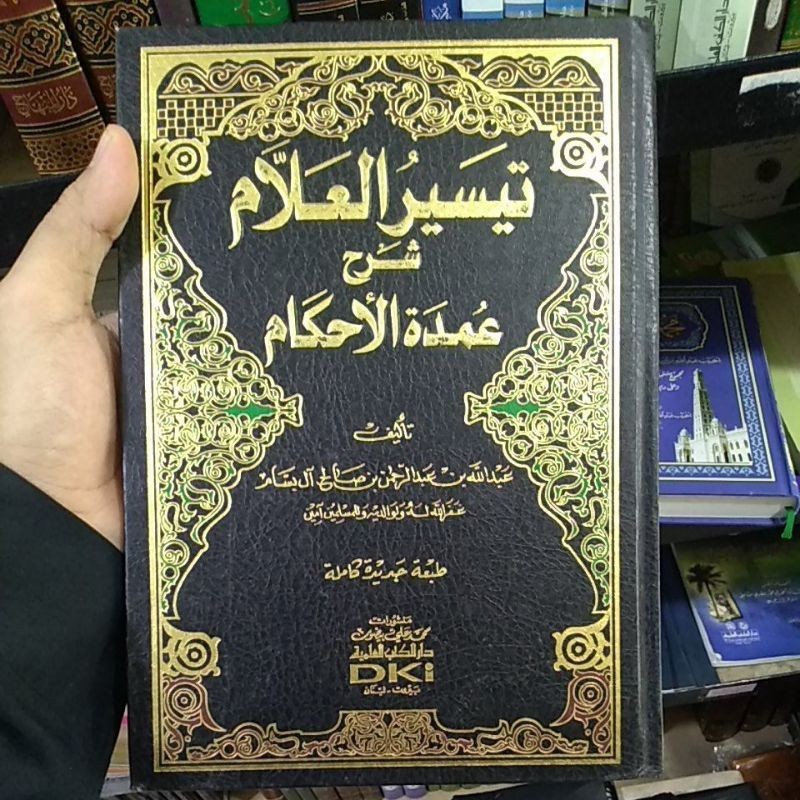 تيسير العلام
شرح
عمدة الأحكام
تأليف
عبد الله بن عبد الرحمن بن صالح آل بسام
غفر الله له ولوالديه وللمسلمين آمين
طبعة جديدة كاملة
منشورات
محمد علي بيضون
دار الكتب العلمية
DKi
بيروت - لبنان